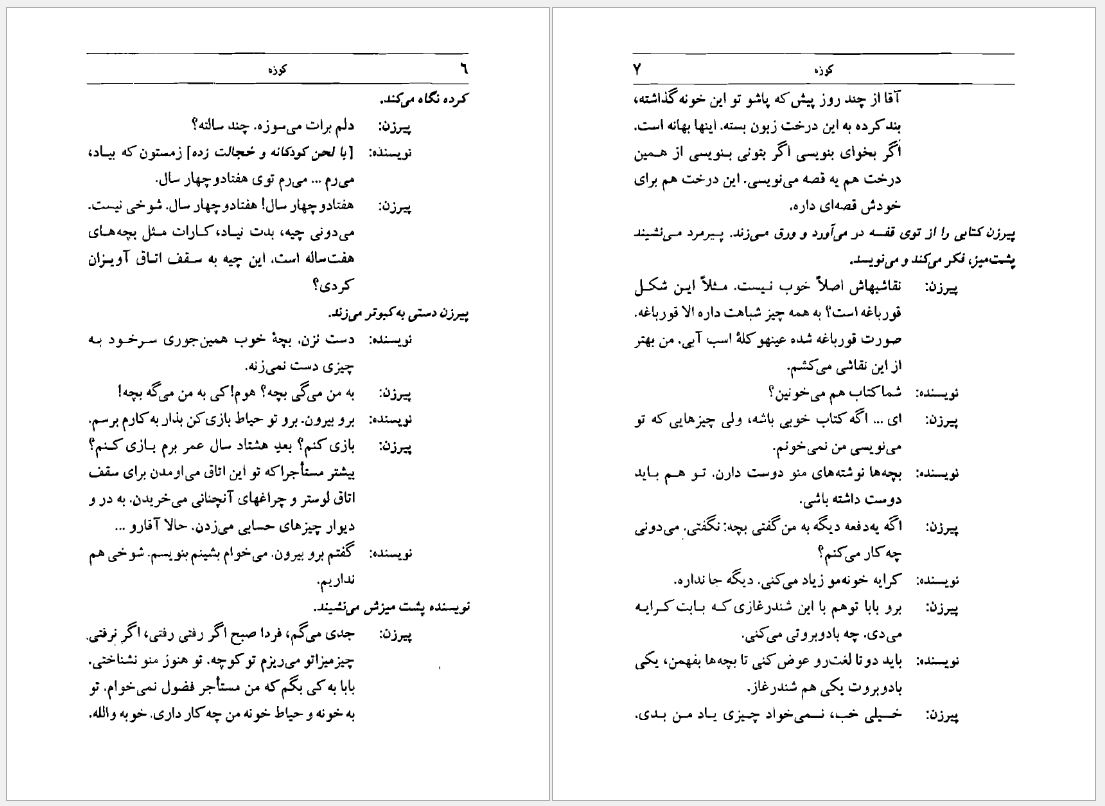 ٦
کوزه
کرده نگاه می‌کند.
پیرزن: دلم برات می‌سوزه. چند سالته؟
نویسنده: [با لحن کودکانه و خجالت زده] زمستون که بیاد،
می‌رم ... می‌رم توی هفتادوچهار سال.
پیرزن: هفتادوچهار سال! هفتادوچهار سال. شوخی نیست.
می‌دونی چیه، بدت نیاد، کارات مثل بچه‌های
هفت‌ساله است. این چیه به سقف اتاق آویزان
کردی؟
پیرزن دستی به کبوتر می‌زند.
نویسنده: دست نزن. بچهٔ خوب همین‌جوری سرخود به
چیزی دست نمی‌زنه.
پیرزن: به من می‌گی بچه؟ هوم! کی به من می‌گه بچه!
نویسنده: برو بیرون. برو تو حیاط بازی کن بذار به کارم برسم.
پیرزن: بازی کنم؟ بعدِ هشتاد سال عمر برم بازی کنم؟
بیشتر مستأجرا که تو این اتاق می‌اومدن برای سقف
اتاق لوستر و چراغهای آنچنانی می‌خریدن. به در و
دیوار چیزهای حسابی می‌زدن. حالا آقارو ...
نویسنده: گفتم برو بیرون. می‌خوام بشینم بنویسم. شوخی هم
نداریم.
نویسنده پشت میزش می‌نشیند.
پیرزن: جدی می‌گم، فردا صبح اگر رفتی رفتی، اگر نرفتی.
چیزمیزاتو می‌ریزم تو کوچه. تو هنوز منو نشناختی.
بابا به کی بگم که من مستأجر فضول نمی‌خوام. تو
به خونه و حیاط خونه من چه کار داری. خوبه والله.
٧
کوزه
آقا از چند روز پیش که پاشو تو این خونه گذاشته،
بند کرده به این درخت زبون بسته. اینها بهانه است.
اگر بخوای بنویسی اگر بتونی بنویسی از همین
درخت هم یه قصه می‌نویسی. این درخت هم برای
خودش قصه‌ای داره.
پیرزن کتابی را از توی قفسه در می‌آورد و ورق می‌زند. پیرمرد می‌نشیند
پشت‌میز، فکر می‌کند و می‌نویسد.
پیرزن: نقاشیهاش اصلاً خوب نیست. مثلاً این شکل
قورباغه است؟ به همه چیز شباهت داره الا قورباغه.
صورت قورباغه شده عینهو کلهٔ اسب آبی. من بهتر
از این نقاشی می‌کشم.
نویسنده: شما کتاب هم می‌خونین؟
پیرزن: ای ... اگه کتاب خوبی باشه، ولی چیزهایی که تو
می‌نویسی من نمی‌خونم.
نویسنده: بچه‌ها نوشته‌های منو دوست دارن. تو هم باید
دوست داشته باشی.
پیرزن: اگه یه‌دفعه دیگه به من گفتی بچه: نگفتی. می‌دونی
چه کار می‌کنم؟
نویسنده: کرایه خونه‌مو زیاد می‌کنی. دیگه جا نداره.
پیرزن: برو بابا توهم با این شندرغازی که بابت کرایه
می‌دی. چه بادوبروتی می‌کنی.
نویسنده: باید دوتا لغت‌رو عوض کنی تا بچه‌ها بفهمن، یکی
بادوبروت یکی هم شندرغاز.
پیرزن: خیلی خب، نمی‌خواد چیزی یاد من بدی.